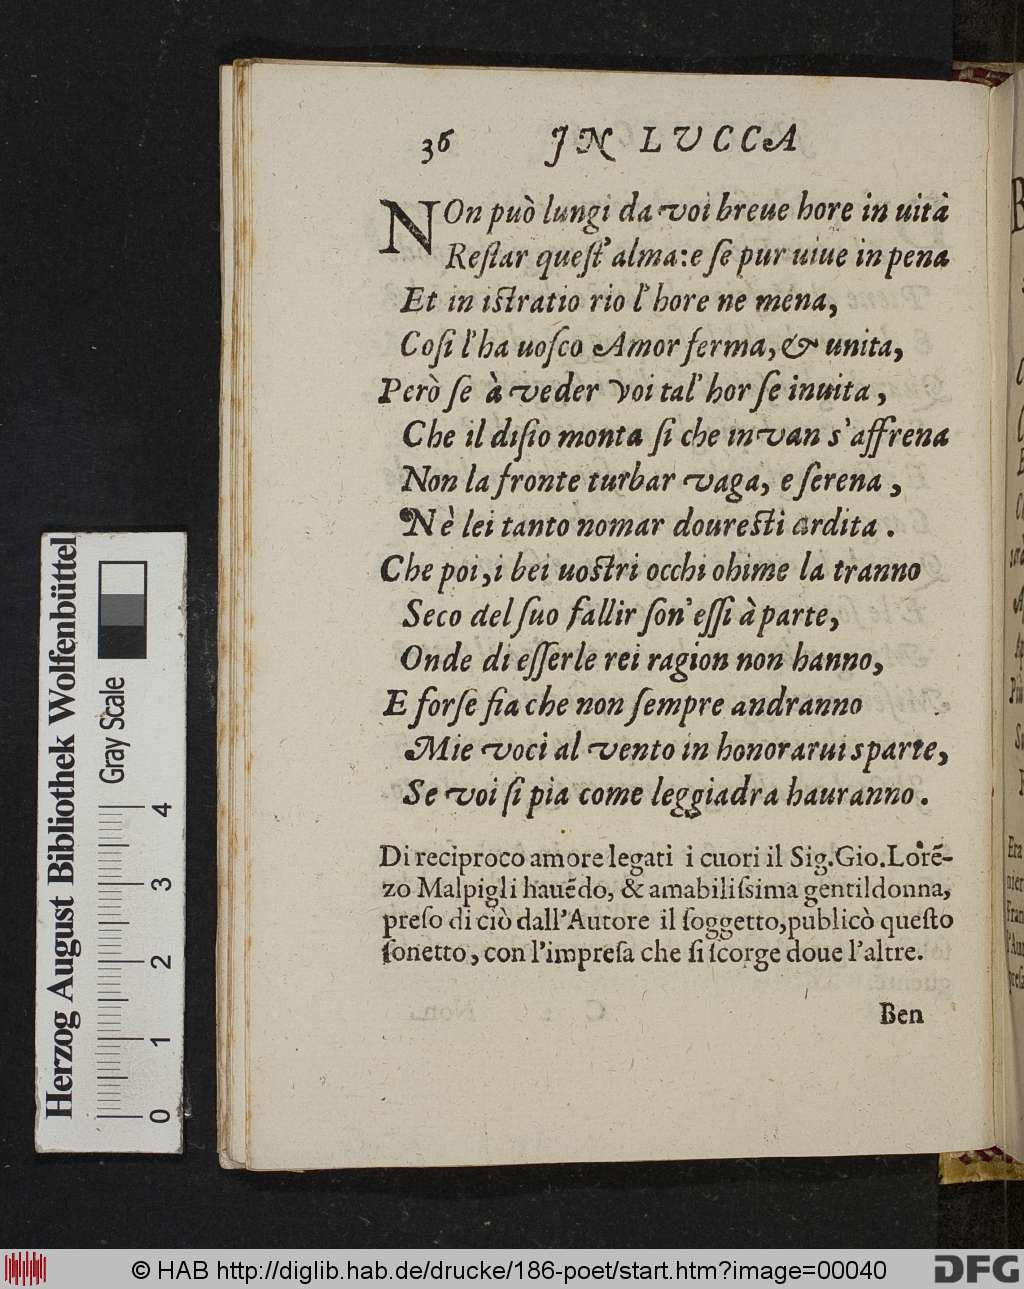 36 IN LVCCA
NOn può lungi da voi breue hore in uita
Reſtar queſt'alma: e ſe pur uiue in pena
Et in iſtratio rio l'hore ne mena,
Coſi l'ha uoſco Amor ferma, & unita,
Però ſe à veder Voi tal' hor ſe inuita,
Che il diſio monta ſi che in van s'affrena
Non la fronte turbar vaga, e ſerena,
Nè lei tanto nomar doureſti ardita.
Che poi, i bei uoſtri occhi ohime la tranno
Seco del ſuo fallir ſon' eſſi à parte,
Onde di eſſerle rei ragion non hanno,
E forſe fia che non ſempre andranno
Mie voci al vento in honorarui sparte,
Se voi ſi pia come leggiadra hauranno.
Di reciproco amore legati i cuori il Sig. Gio. Lorē-
zo Malpigli hauēdo, & amabiliſsima gentildonna,
preſo di ciò dall'Autore il ſoggetto, publicò queſto
ſonetto, con l'impreſa che ſi ſcorge doue l'altre.
Ben
Herzog August Bibliothek Wolfenbüttel
Gray Scale
0 1 2 3 4
© HAB http://diglib.hab.de/drucke/186-poet/start.htm?image=00040
DFG